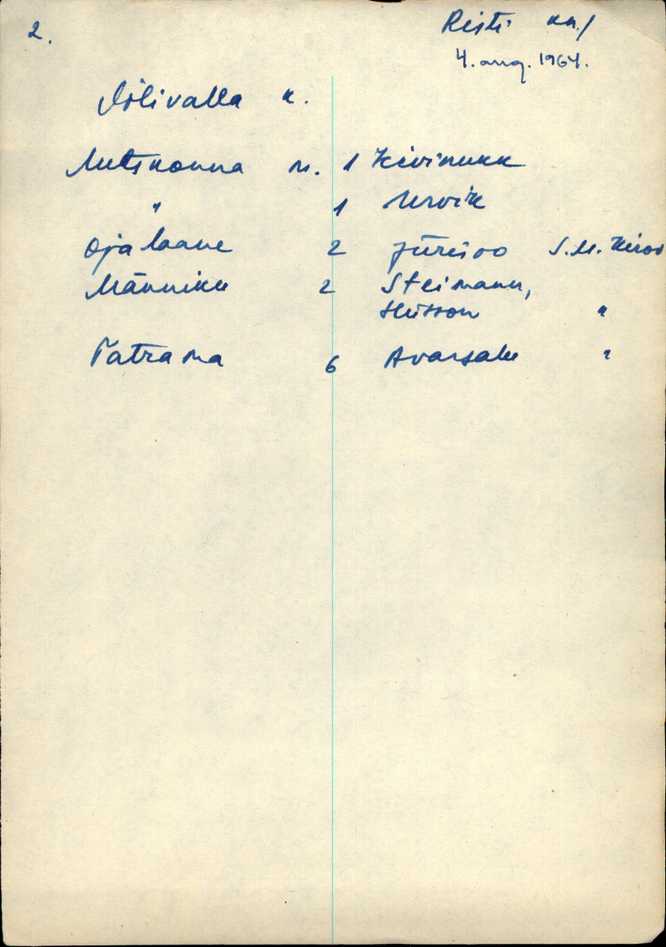 2.
Risti kn./
4. aug. 1964.
Võlivalla k.
Metskonna m. 1 Kivinukk
" 1 Urvik
Ojalaane 2 Jürisoo S. M. Kirov
Männiku 2 Steimann,
"
Tatrama 6 Avarsalu "